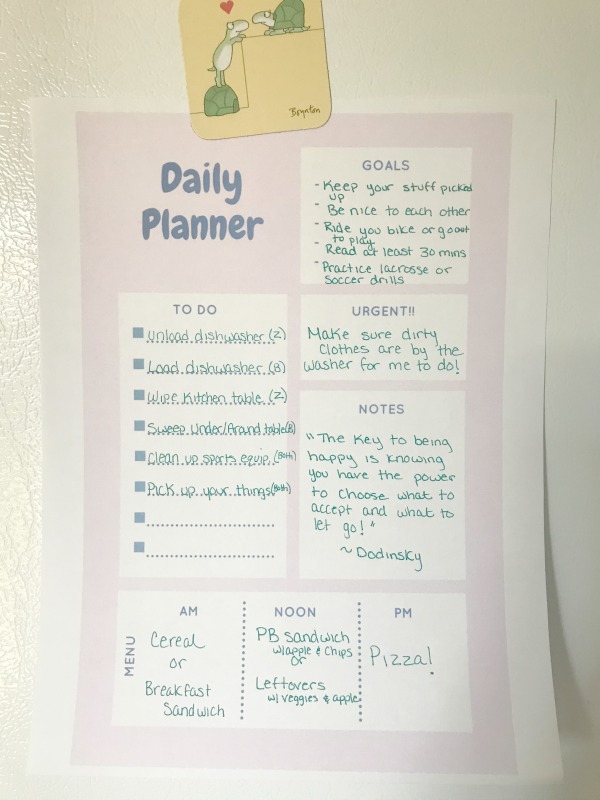 Boynton
Daily
Planner
GOALS
- Keep your stuff picked
up
- Be nice to each other
- Ride you bike or go out
to play
- Read at least 30 mins
- Practice lacrosse or
Soccer drills
TO DO
Unload dishwasher (Z)
Load dishwasher (B)
Wipe Kitchen table (Z)
Sweep Under/Around table (B)
Clean up sports equip. (Both)
Pick up your things (Both)
URGENT!!
Make sure dirty
Clothes are by the
washer for me to do!
NOTES
"The Key to being
happy is knowing
you have the power
to choose what to
accept and what to
let go!"
~ Dodinsky
MENU
AM
Cereal
or
Breakfast
Sandwich
NOON
PB Sandwich
w/apple & Chips
or
Leftovers
w/ veggies & apple
PM
Pizza!